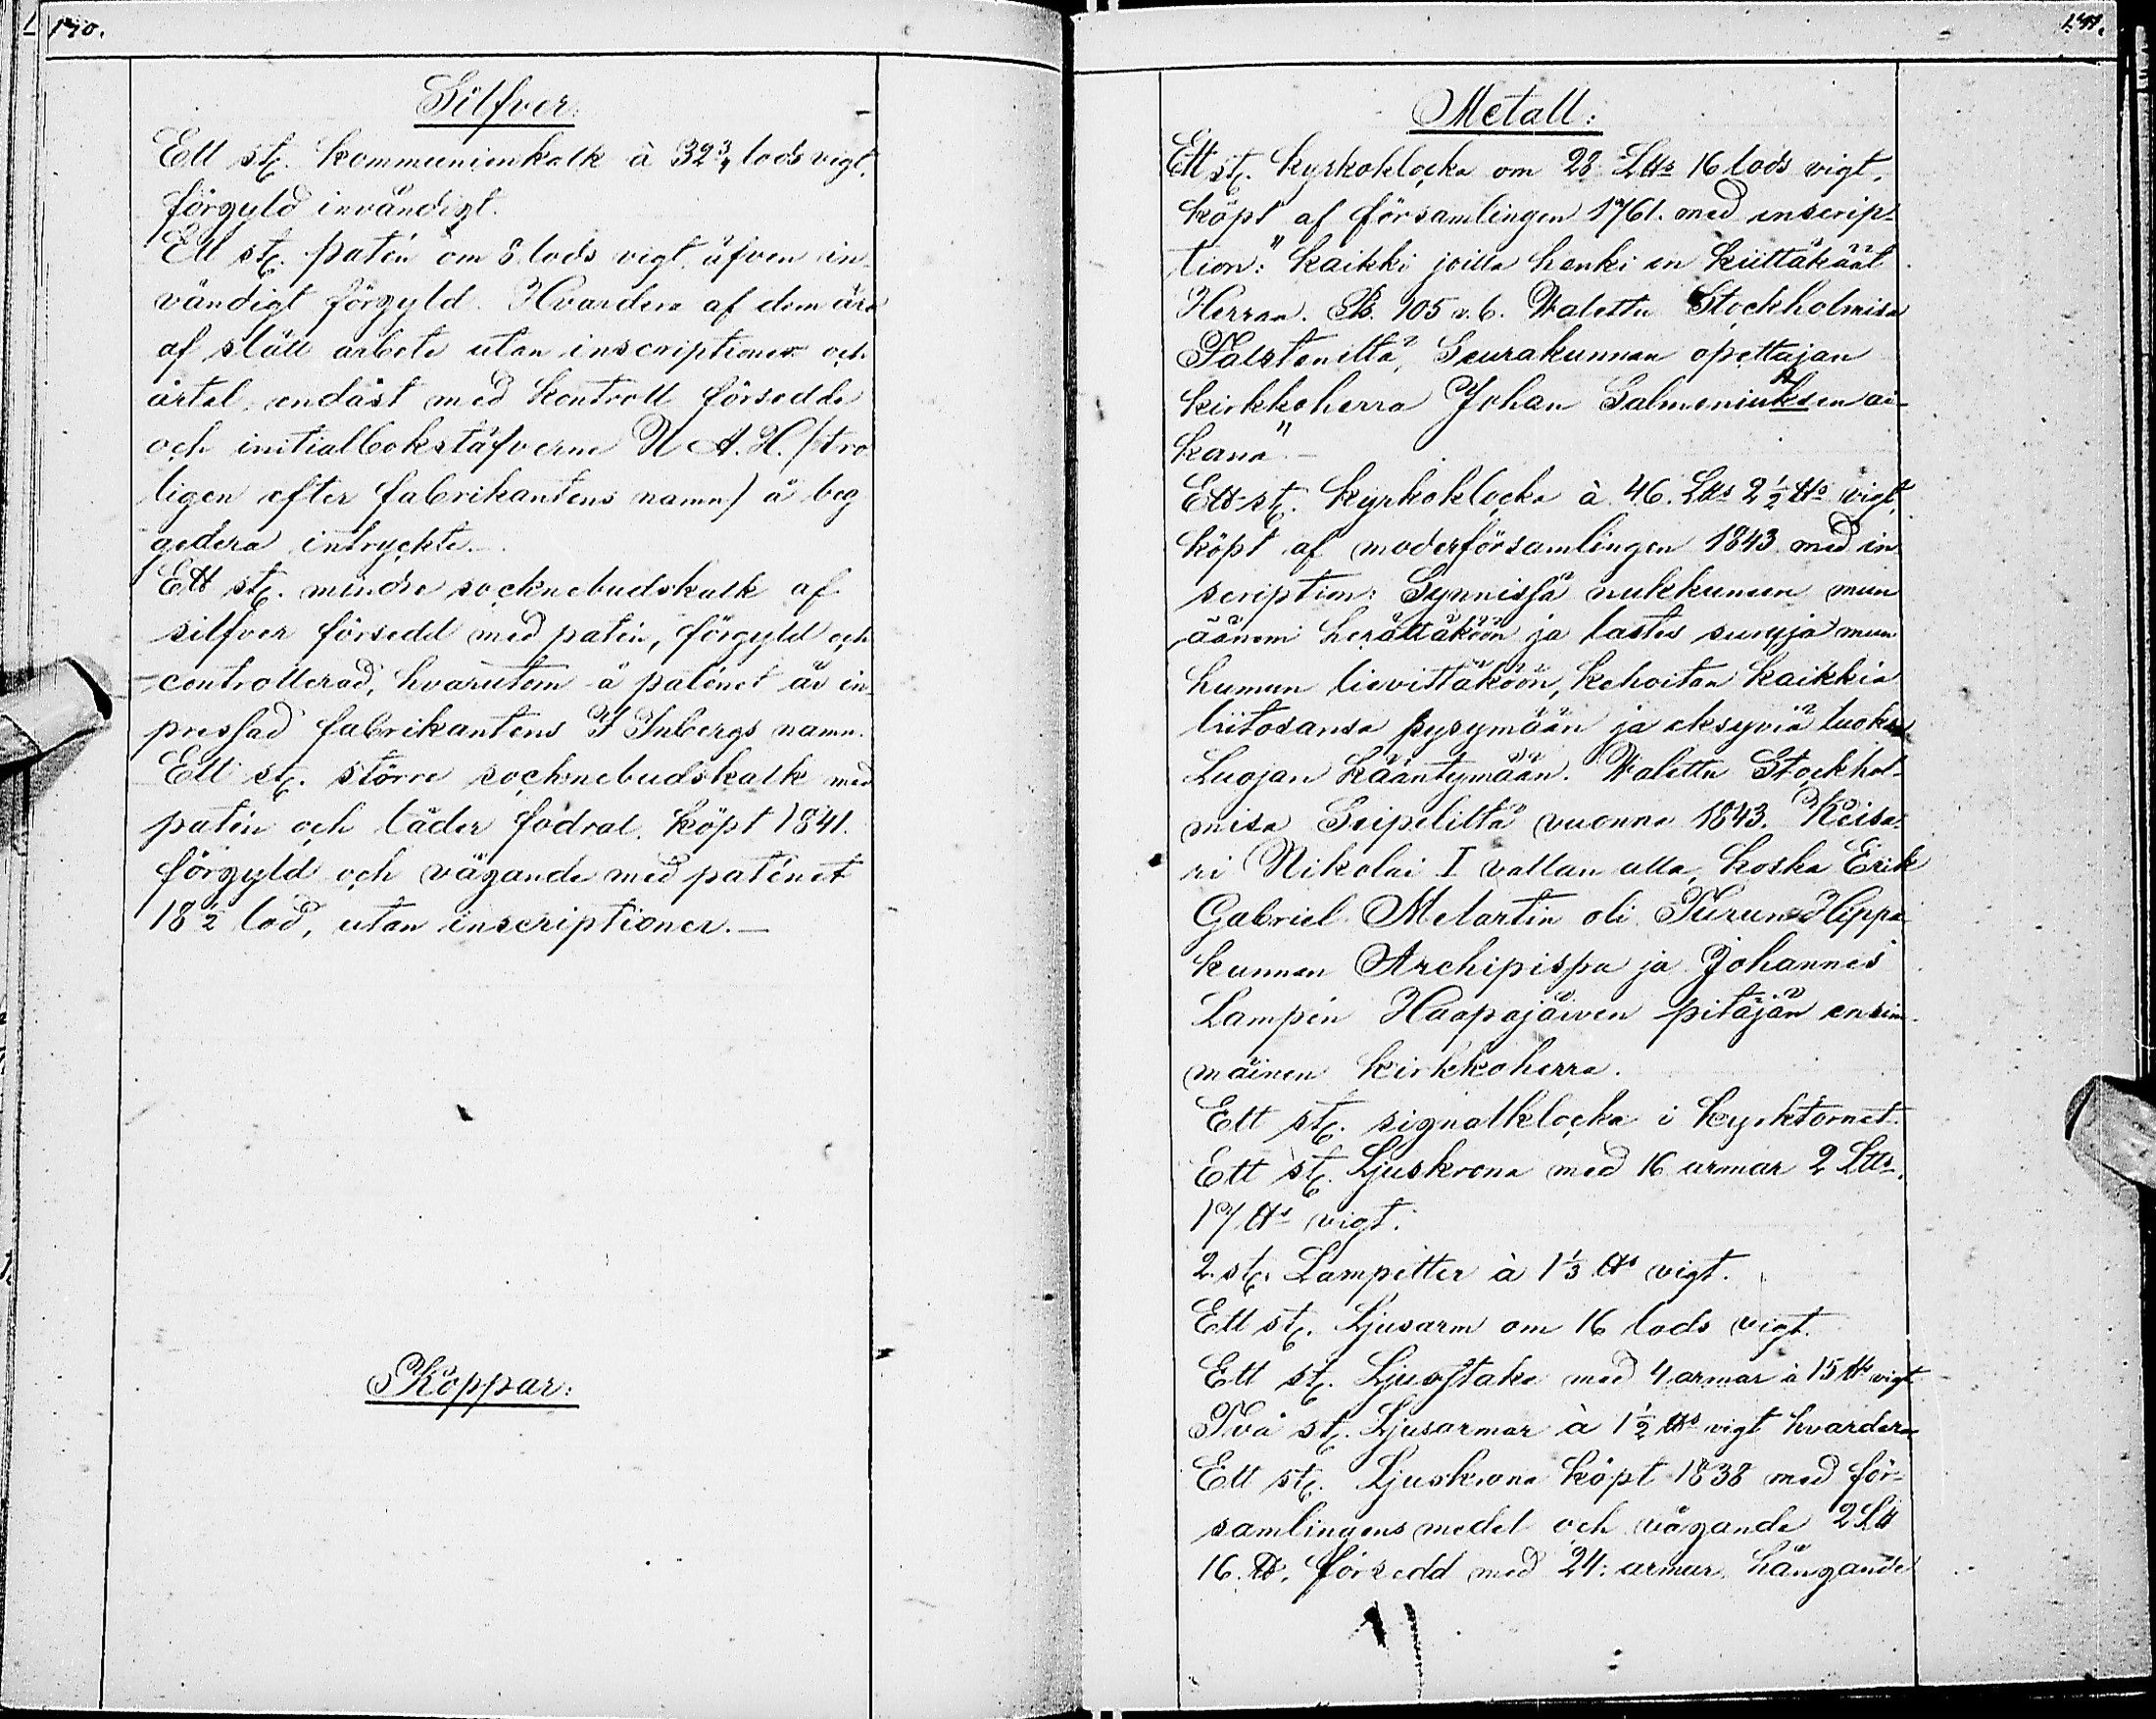 170.
Silfver:
Ett st. kommunionkalk à 32 3/4 lods vigt,
förgyld invändigt.
Ett st. patén om 8 lods vigt, äfven in-
vändigt förgyld. Hvardera af dem äro
af slätt arbete utan inscriptioner och
årtal, endast med kontroll försedde
och initialbokstäfverne N A. H. (tro
ligen efter fabrikantens namn) å beg
gedera intryckte.
Ett st. mindre socknebudskalk af
silfver försedd med patén, förgyld och
controllerad, hvarutom å patenet är in-
pressad fabrikantens I Inbergs namn.
Ett st. större socknebudskalk med
patén och läder fodral, köpt 1841.
förgyld och vägande med patenet
18 1/2 lod, utan inscriptioner.—
Koppar:
171.
Metall:
Ett st. kyrkoklocka om 28 L℔s 16 lods vigt,
köpt af församlingen 1761. med inscrip-
tion: "Kaikki joilla henki on kiittäkäät
Herraa. Ps. 105 v. 6. Walettu Stockholmisa
Falstenilta, Seurakunnan opettajan
kirkkoherra Johan Salmeniuksen ai-
kana".—
Ett st. kyrkoklocka à 46. L℔s 2 1/2 ℔s vigt,
köpt af moderförsamlingen 1843 med in
scription: Synnissä nukkunun mun
ääneni herättäköön ja lastes surija mun
humun lievittäköön, Kehoitan kaikkia
liitosansa pysymään ja eksyviä luoksi
Luojan kääntymään. Walettu Stockhol-
misa Seipeliltä vuonna 1843. Keisa-
ri Nikolai I vallan alla, koska Erik
Gabriel Melartin oli Turun Hippa
kunnan Archipispa ja Johannes
Lampén Haapajärven pitäjän ensim-
mäinen kirkkoherra.
Ett st. signalklocka i kyrktornet.
Ett st. Ljuskrona med 16 armar 2 L℔s.
17 ℔s vigt.
2. st. Lampetter à 1 1/3 ℔s vigt.
Ett st. Ljusarm om 16 lods vigt.
Ett st. Ljusstake med 4 armar à 15 ℔s vigt
Två st. Ljusarmar à 1 1/2 ℔s vigt hvardera
Ett st. Ljuskrona köpt 1838 med för-
samlingens medel och vägande 2 L℔
16. ℔. försedd med 24: armar, hängande